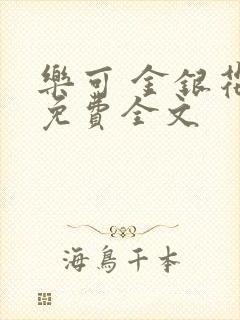 樂可 金銀花
免費全文
海鳥千本